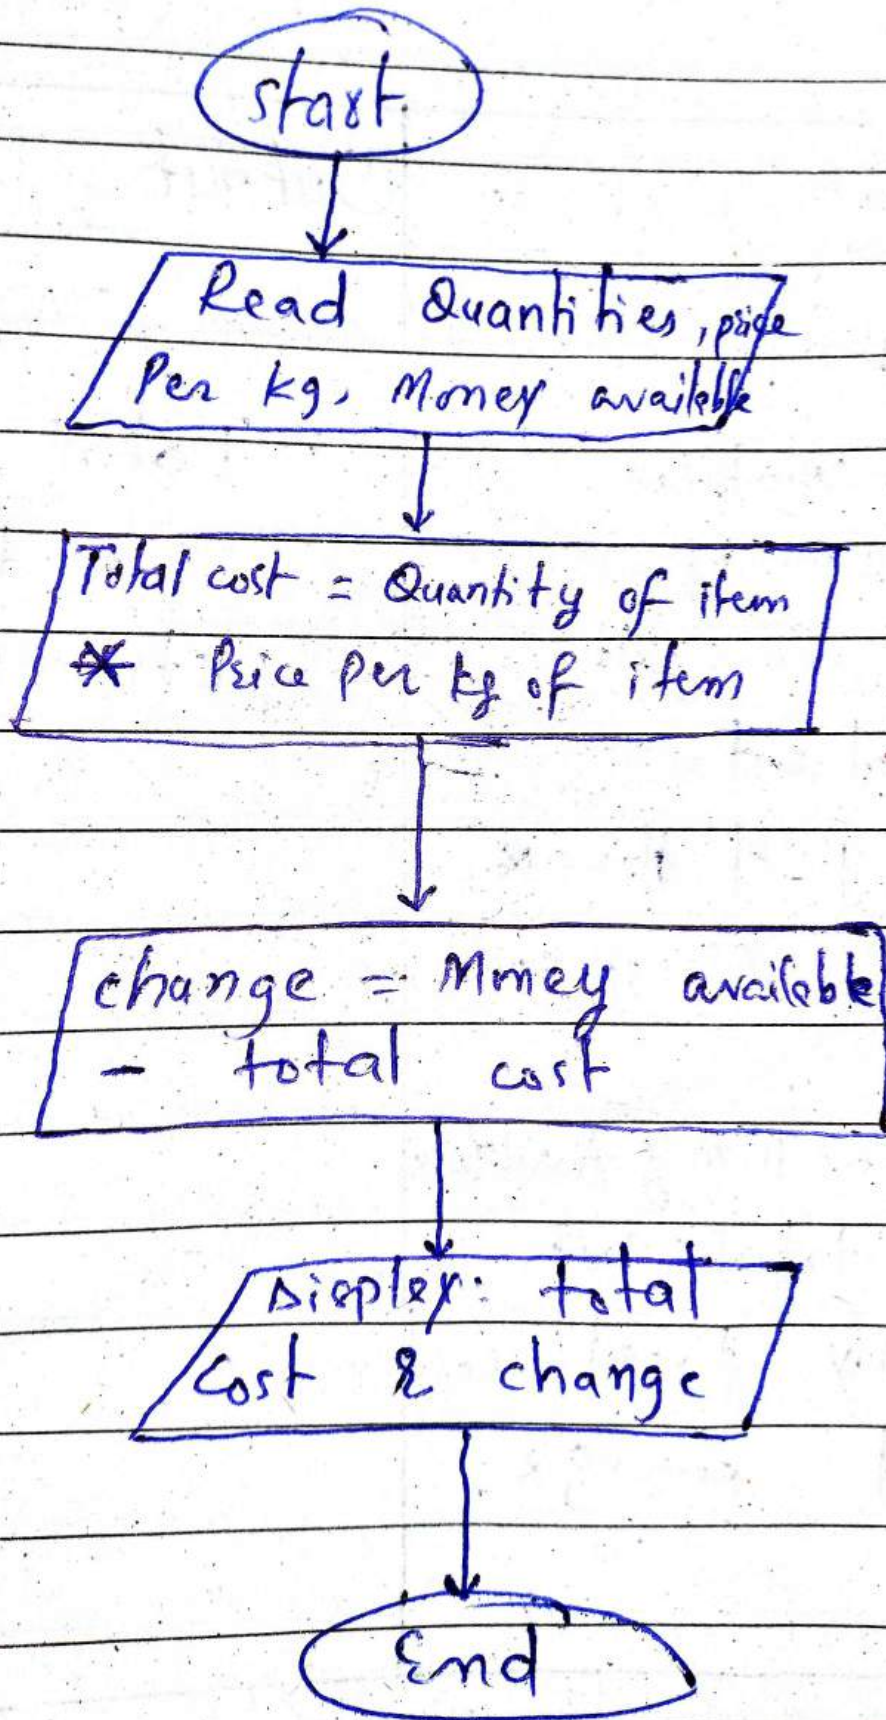 start
Read Quantities, price
Per kg, Money available
Total cost = Quantity of item
* Price Per kg of item
change = Money available
- total cost
Display: total
Cost & change
End